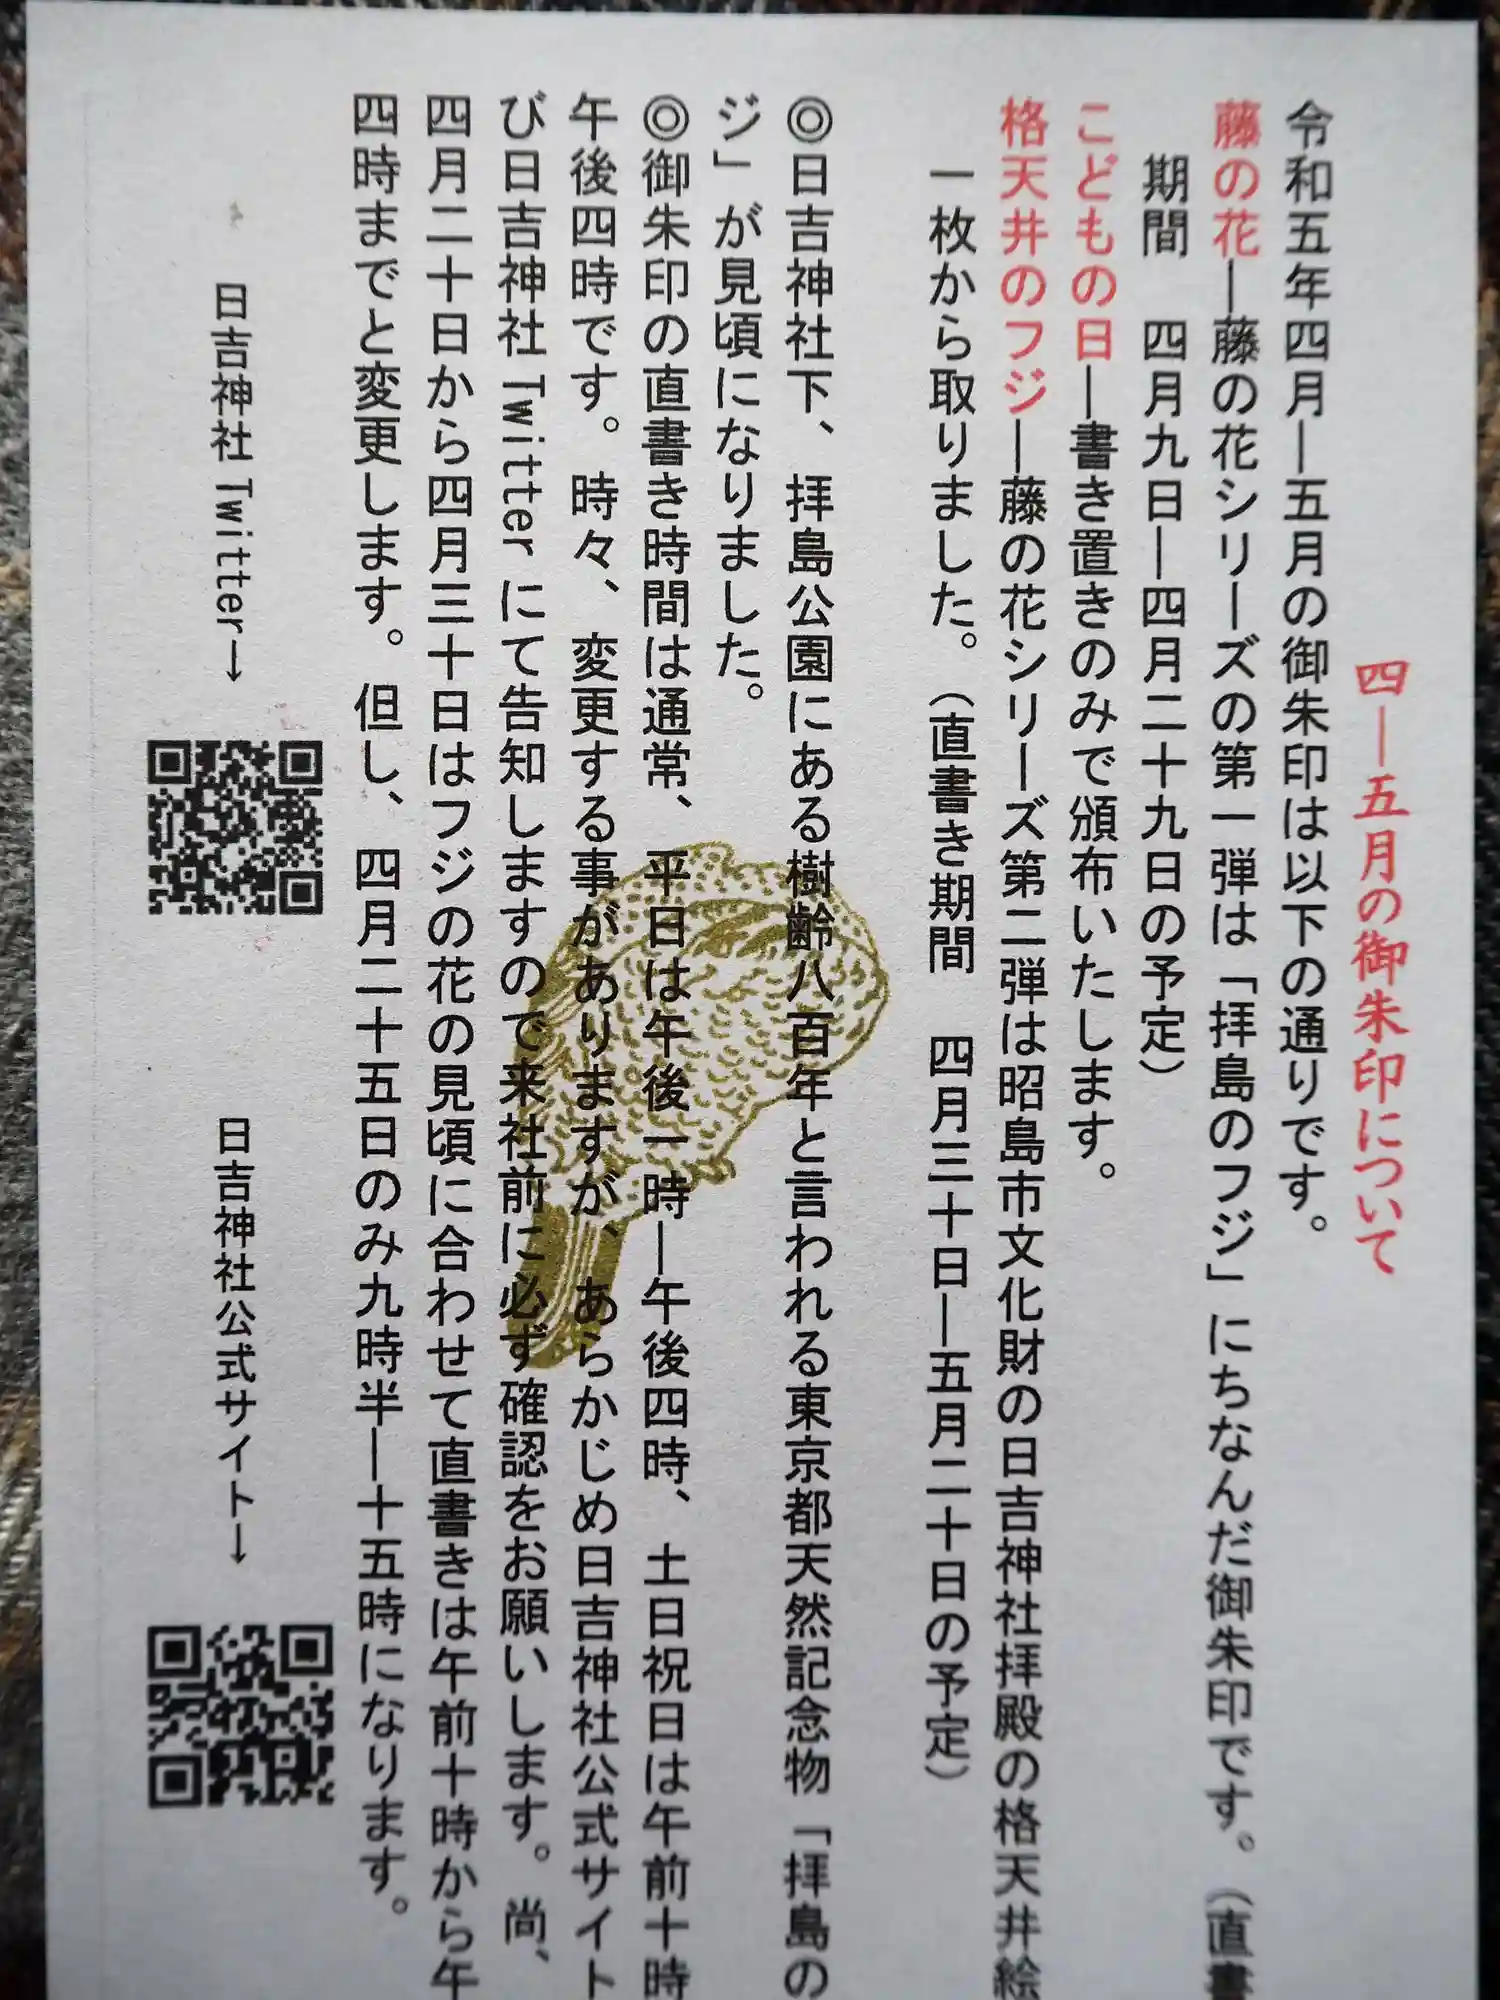 四―五月の御朱印について
令和五年四月―五月の御朱印は以下の通りです。
藤の花―藤の花シリーズの第一弾は「拝島のフジ」にちなんだ御朱印です。（直書
期間　四月九日―四月二十九日の予定）
こどもの日―書き置きのみで頒布いたします。
格天井のフジ―藤の花シリーズ第二弾は昭島市文化財の日吉神社拝殿の格天井絵
一枚から取りました。（直書き期間　四月三十日―五月二十日の予定）
◎日吉神社下、拝島公園にある樹齢八百年と言われる東京都天然記念物「拝島の
ジ」が見頃になりました。
◎御朱印の直書き時間は通常、平日は午後一時―午後四時、土日祝日は午前十時
午後四時です。時々、変更する事がありますが、あらかじめ日吉神社公式サイト
び日吉神社Twitterにて告知しますので来社前に必ず確認をお願いします。尚、
四月二十日から四月三十日はフジの花の見頃に合わせて直書きは午前十時から午
四時までと変更します。但し、四月二十五日のみ九時半―十五時になります。
日吉神社Twitter→
日吉神社公式サイト→